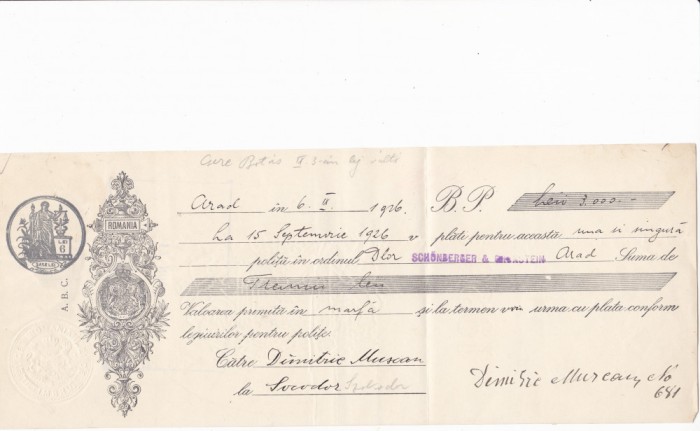 LEI
6
A.B.C.
ROMANIA
Arad în 6. II. 1926. B.P. Leiv 3.000.-
La 15 Septemvrie 1926 v plate pentru aceasta una si singură
poliță în ordinul Dlor SCHÖNBERGER & Arad Suma de
lei
Valoarea primită în marfă și la termen voi urma cu plata conform
legiuirilor pentru polițe
Către Dimitrie Muresan
la Socodor
Dimitrie Muresan
681